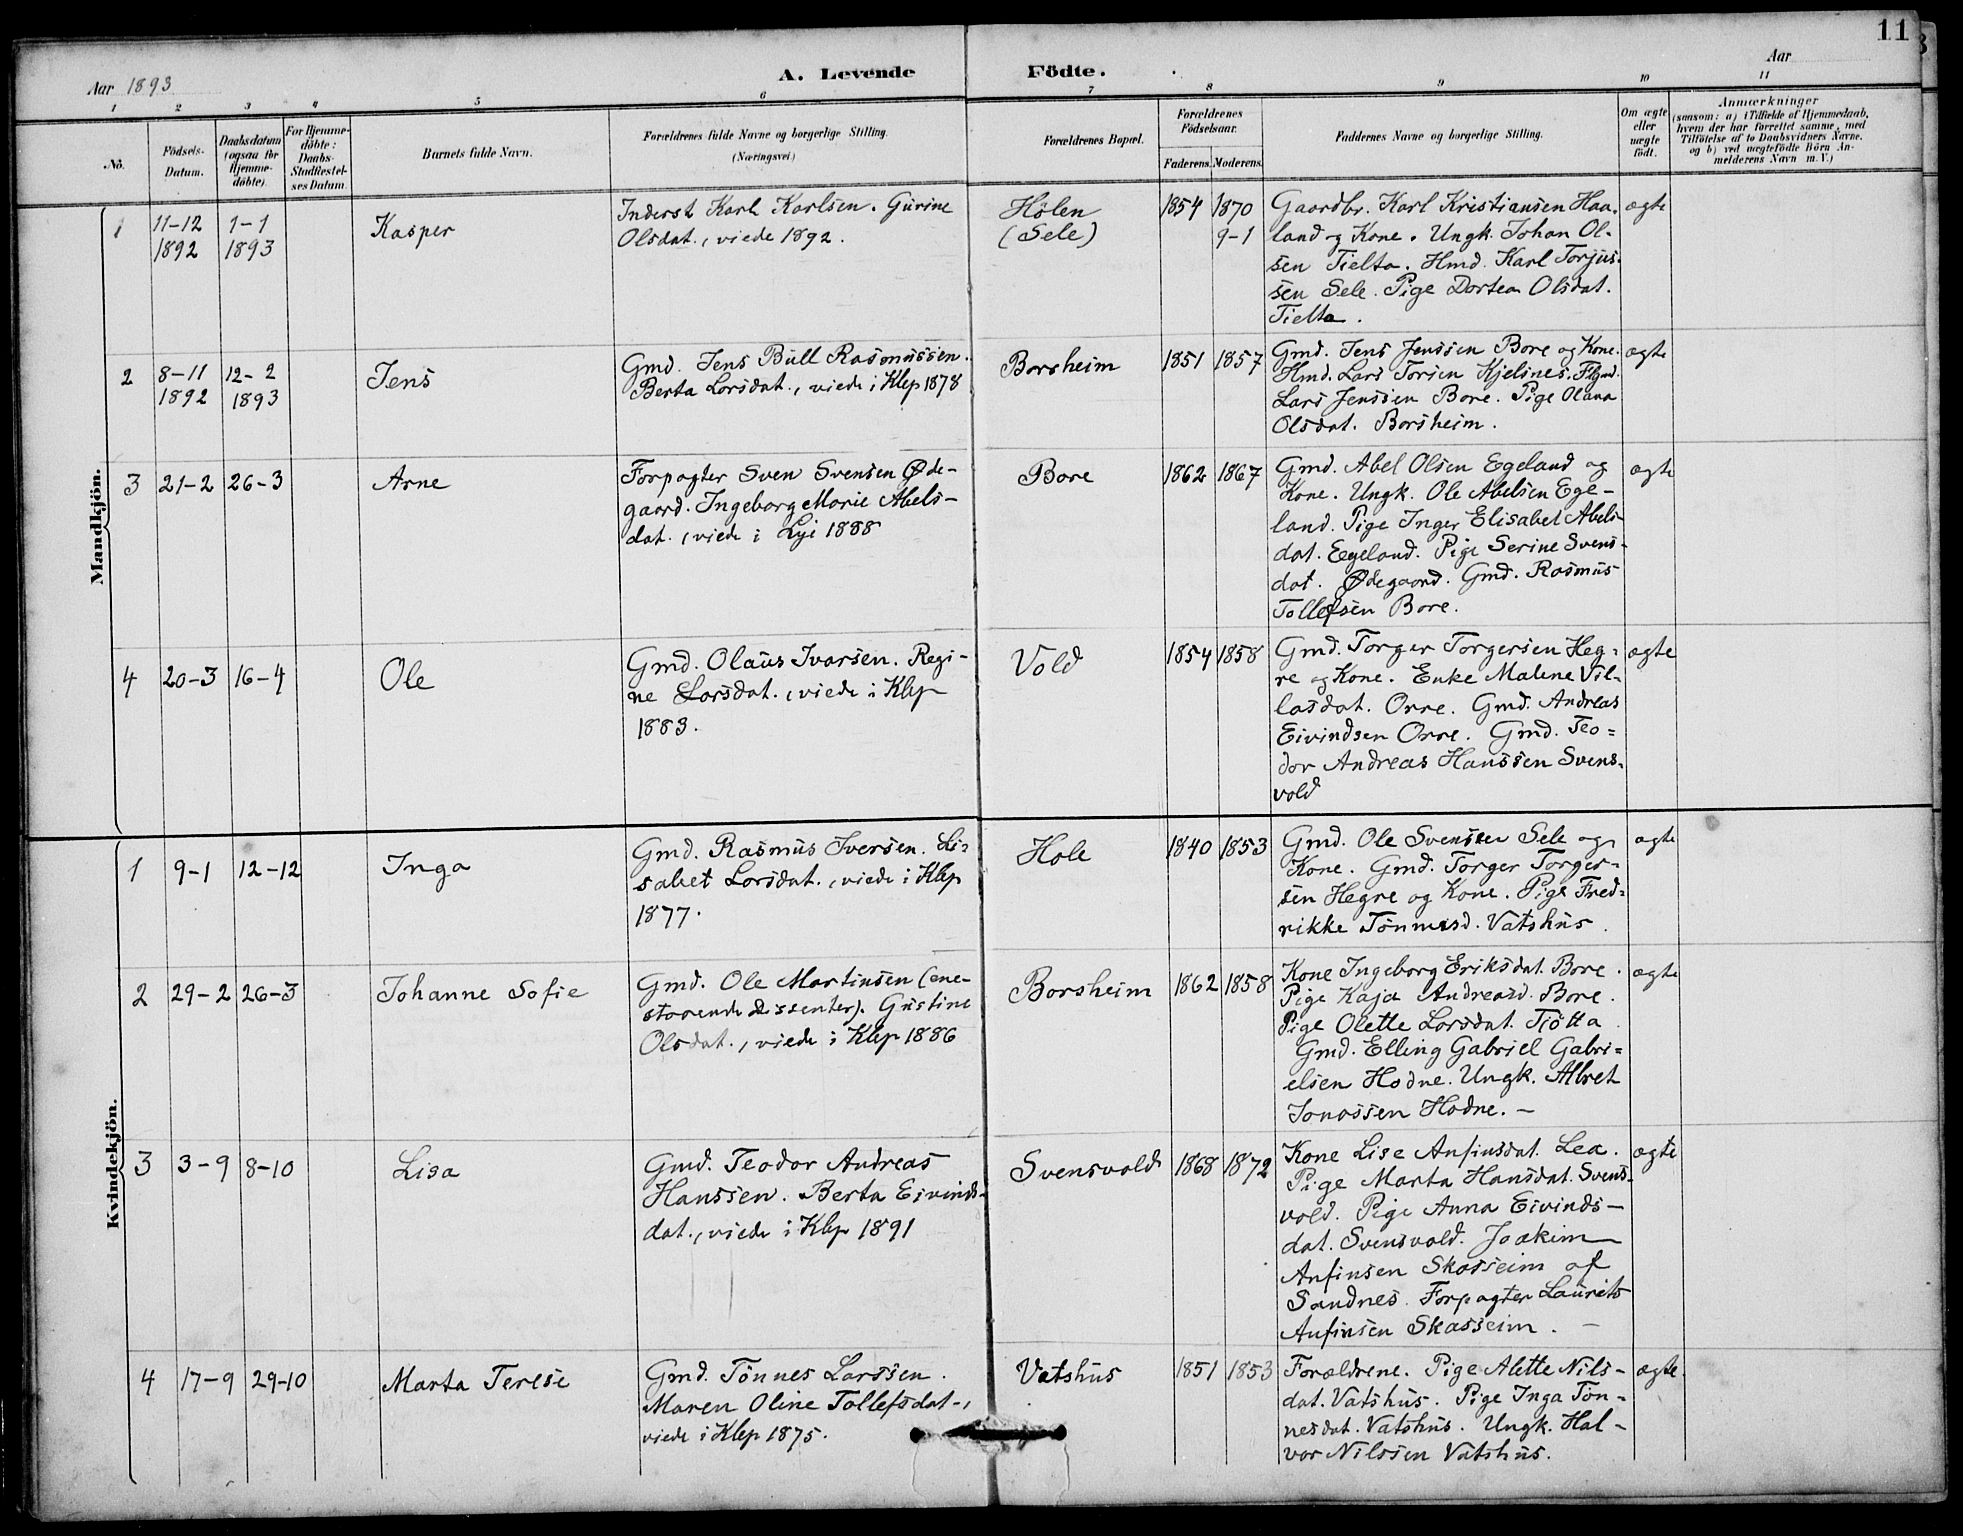 11
Aar 1893
A. Levende Födte.
Aar
1 2 3 4 5 6 7 8 9 10 11
No.
Födsels-Datum.
Daabsdatum (ogsaa for Hjemme-döbte)
For Hjemme-döbte: Daabs-Stadfæstel-ses Datum.
Barnets fulde Navn.
Forældrenes fulde Navne og borgerlige Stilling.
(Næringsvei)
Forældrenes Bopæl.
Forældrenes Födselsaar.
Faderens. Moderens.
Faddernes Navne og borgerlige Stilling.
Om ægte eller uægte födt.
Anmærkninger
(saasom: a) i Tilfælde af Hjemmedaab,
hvem der har forrettet samme, med
Tilföielse af to Daabsvidners Navne.
og b) ved uægtefödte Börn An-
melderens Navn m. V.)
Mandkjön.
1
11-12 1892
1-1 1893
Kasper
Inderst Karl Karlsen. Gurine
Olsdat., viede 1892.
Hölen
(Sele)
1854
1870
9-1
Gaardbr. Karl Kristiansen Haa-
land og Kone. Ungk. Johan Ol-
sen Tielta. Hmd. Karl Torjus-
sen Sele. Pige Dortea Olsdat.
Tielta.
ægte
2
8-11 1892
12-2 1893
Jens
Gmd. Jens Bull Rasmussen.
Berta Larsdat., viede i Klep 1878
Borsheim
1851
1857
Gmd. Jens Jenssen Bore og Kone.
Hmd. Lars Torsen Kjelsnes.
Lars Jenssen Bore. Pige Olana
Olsdat. Borsheim.
ægte
3
21-2
26-3
Arne
Forpagter Sven Svensen Øde-
gaard. Ingeborg Marie Abels-
dat., viede i Lye 1888
Bore
1862
1867
Gmd. Abel Olsen Egeland og
Kone. Ungk. Ole Abelsen Ege-
land. Pige Inger Elisabet Abels-
dat. Egeland. Pige Serine Svens-
dat. Ødegaard. Gmd. Rasmus
Tollefsen Bore.
ægte
4
20-3
16-4
Ole
Gmd. Olaus Ivarsen. Regi-
ne Larsdat., viede i Klep
1883.
Vold
1854
1858
Gmd. Torger Torgersen Heg=
re og Kone. Enke Malene Vil-
lasdat. Orre. Gmd. Andreas
Eivindsen Orre. Gmd. Teo=
dor Andreas Hanssen Svens-
vold
ægte
Kvindekjön.
1
9-1
12-12
Inga
Gmd. Rasmus Iversen. Li=
sabet Larsdat., viede i Klep
1877.
Hole
1840
1853
Gmd. Ole Svensen Sele og
Kone. Gmd. Torger Torger=
sen Hegre og Kone. Pige Fred=
rikke Tönnesd. Vatshus.
ægte
2
29-2
26-3
Johanne Sofie
Gmd. Ole Martinsen (ene-
staaende dissenter). Gustine
Olsdat., viede i Klep 1886
Borsheim
1862
1858
Kone Ingeborg Eriksdat. Bore.
Pige Kaja Andreasd. Bore.
Pige Olette Larsdat. Tjötta.
Gmd. Elling Gabriel Gabri=
elsen Hodne. Ungk. Albret
Jonassen Hodne. -
ægte
3
3-9
8-10
Lisa
Gmd. Teodor Andreas
Hanssen. Berta Eivinds-
dat., viede i Klep 1891
Svensvold
1868
1872
Kone Lise Anfinsdat. Lea.
Pige Marta Hansdat. Svens-
vold. Pige Anna Eivinds-
dat. Svensvold. Joakim
Anfinsen Skasseim af
Sandnes. Forpagter Laurits
Anfinsen Skasseim. -
ægte
4
17-9
29-10
Marta Terese
Gmd. Tönnes Larssen.
Maren Oline Tollefsdat.,
viede i Klep 1875.
Vatshus
1851
1853
Forældrene. Pige Alette Nils-
dat. Vatshus. Pige Inga Tön-
nesdat. Vatshus. Ungk. Hal-
vor Nilssen Vatshus.
ægte.